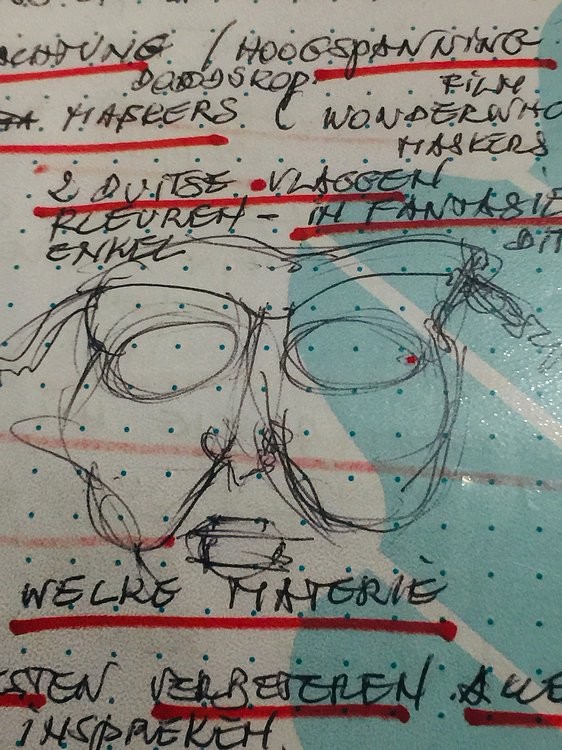 ACHTUNG / HOOGSPANNING
DOODSKOP FILM
MASKERS ( WONDERWHO
MASKERS
2 DUITSE VLAGGEN
KLEUREN - IN FANTASIE
ENKEL DIT
WELKE MATERIË
ESTEN VERBETEREN ALLE
INSPREKEN